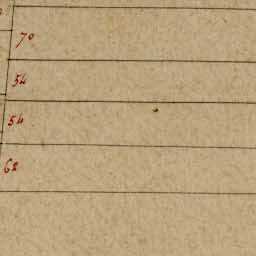 70
54
54
62